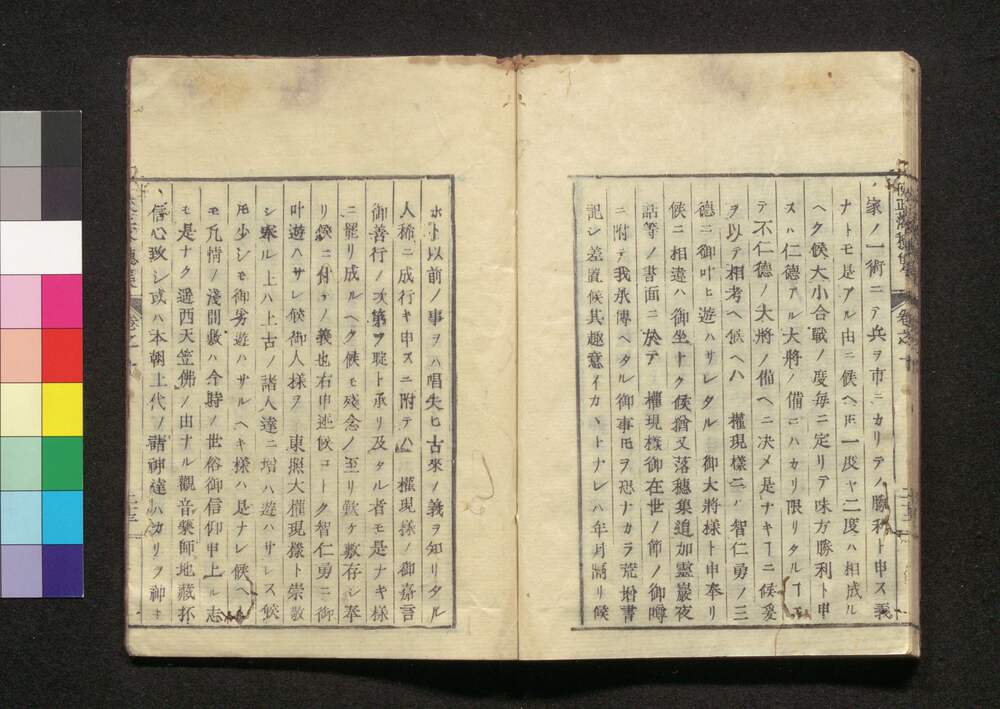 家ノ一術ニテ兵ヲ市ニカリテノ勝利ト申ス義
ナトモ是アル由ニ候ヘ𪜈一度ヤ二度ハ相成ル
ヘク候大小合戰ノ度毎ニ定リテ味方勝利ト申
スハ仁德アル大將ノ備ニハカリ限リタルヿニ
テ不仁德ノ大將ノ備ヘニ决メ是ナキヿニ候爰
ヲ以テ相考ヘ候ヘハ 權現樣ニハ智仁勇ノ三
德ニ御叶ヒ遊ハサレタル 御大將樣ト申奉リ
候ニ相違ハ御坐ナク候猶又落穗集追加靈巖夜
話等ノ書面ニ於テ 權現樣御在世ノ節ノ御噂
ニ附テ我承傳ヘタル御事𪜈ヲ恐ナカラ荒增書
記シ差置候其趣意イカヽトナレハ年月隔リ候
ホト以前ノ事ヲハ唱失ヒ古來ノ義ヲ知リタル
人稀ニ成行キ申スニ附テハ 權現樣ノ御嘉言
御善行ノ次第ヲ聢ト承リ及タル者モ是ナキ樣
ニ罷リ成ルヘク候モ殘念ノ至リ歎ケ敷存シ奉
リ候ニ付テノ義也右申述候コトク智仁勇ニ御
叶遊ハサレ候御人樣ヲ 東照大權現樣ト崇敬
シ奉ル上ハ上古ノ諸人達ニ增ハ遊ハサレス候
𪜈少シモ御劣遊ハサルヘキ樣ハ是ナレ候ヘ
𪜈凡情ノ淺間敷ハ今時ノ世俗御信仰申上ル志
モ是ナク遥西天竺佛ノ由ナル觀音藥師地藏抔
信心致シ或ハ本朝上代ノ諸神達ハカリヲ神キ